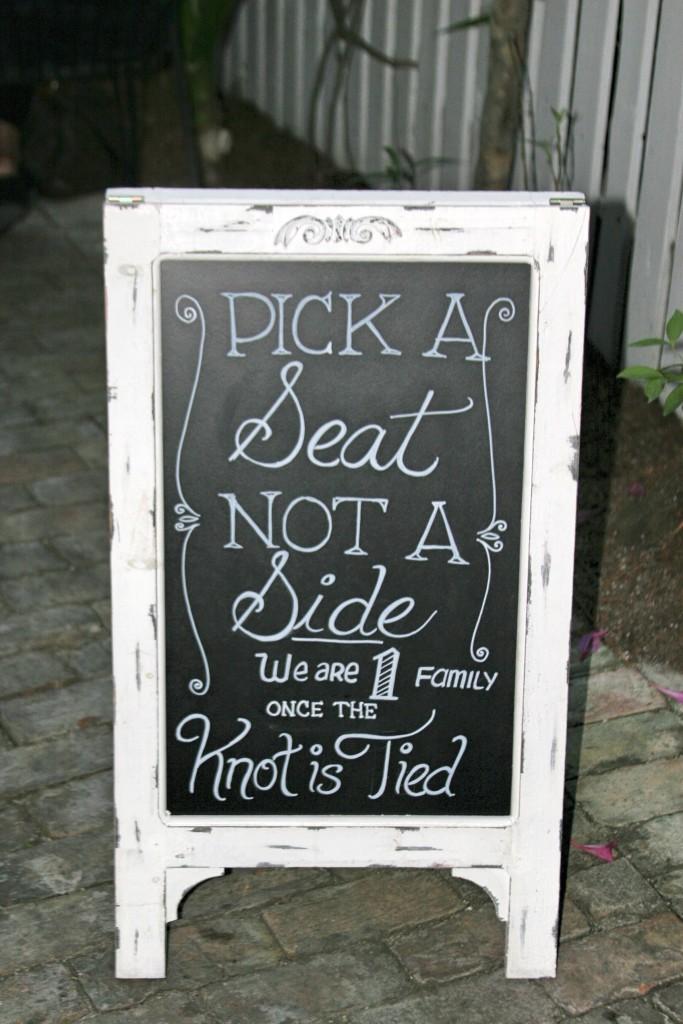 PICK A
Seat
NOT A
Side
We are 1 FAMILY
ONCE THE
Knot is Tied